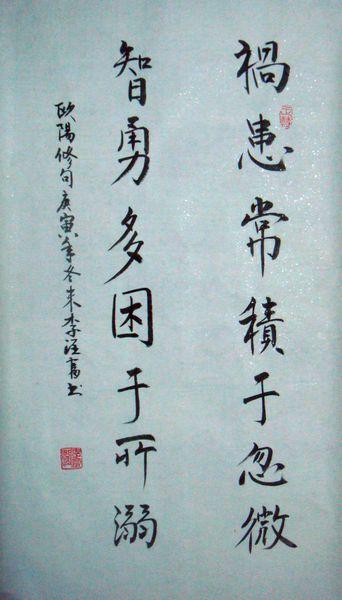 禍患常積于忽微
智勇多困于所溺
欧陽修句庚寅年冬末李注高书